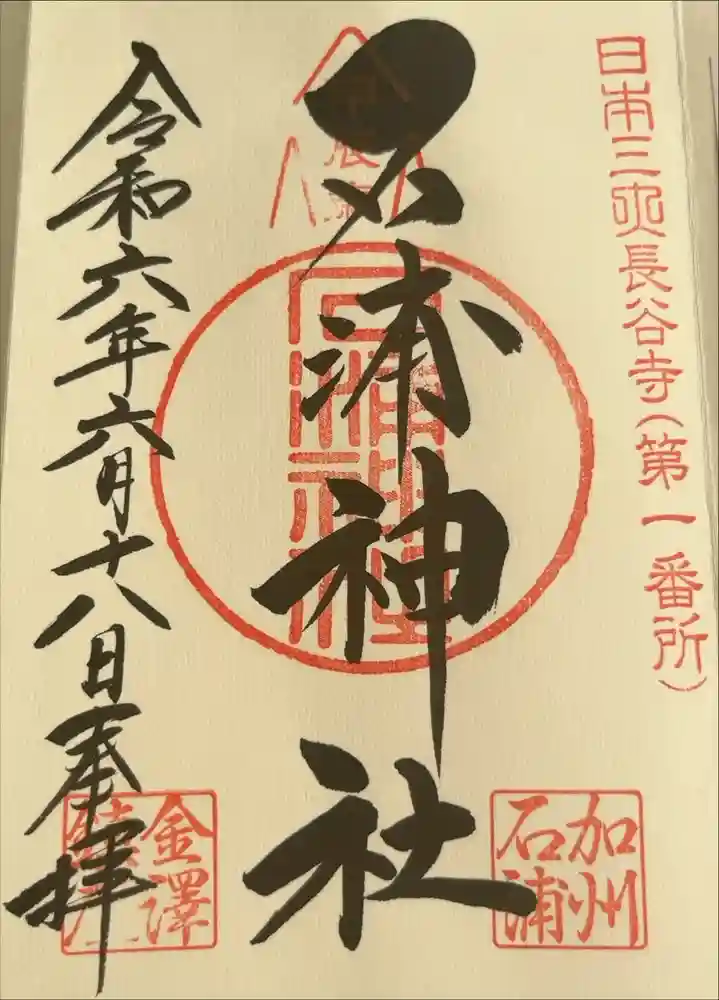 日本三所長谷寺(第一番所)
石浦神社
石浦神社
加州
石浦
令和六年六月十八日奉拝
金澤